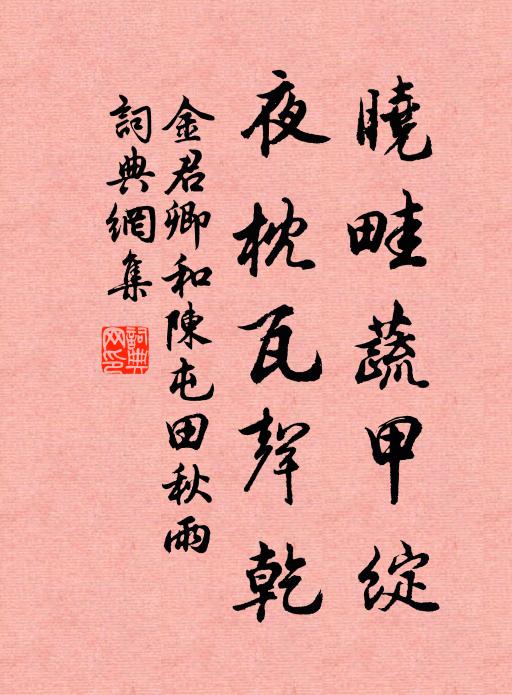 曉畦蔬甲綻
夜枕瓦聲乾
金君卿和陳屯田秋雨
詞典網集
詞典网印